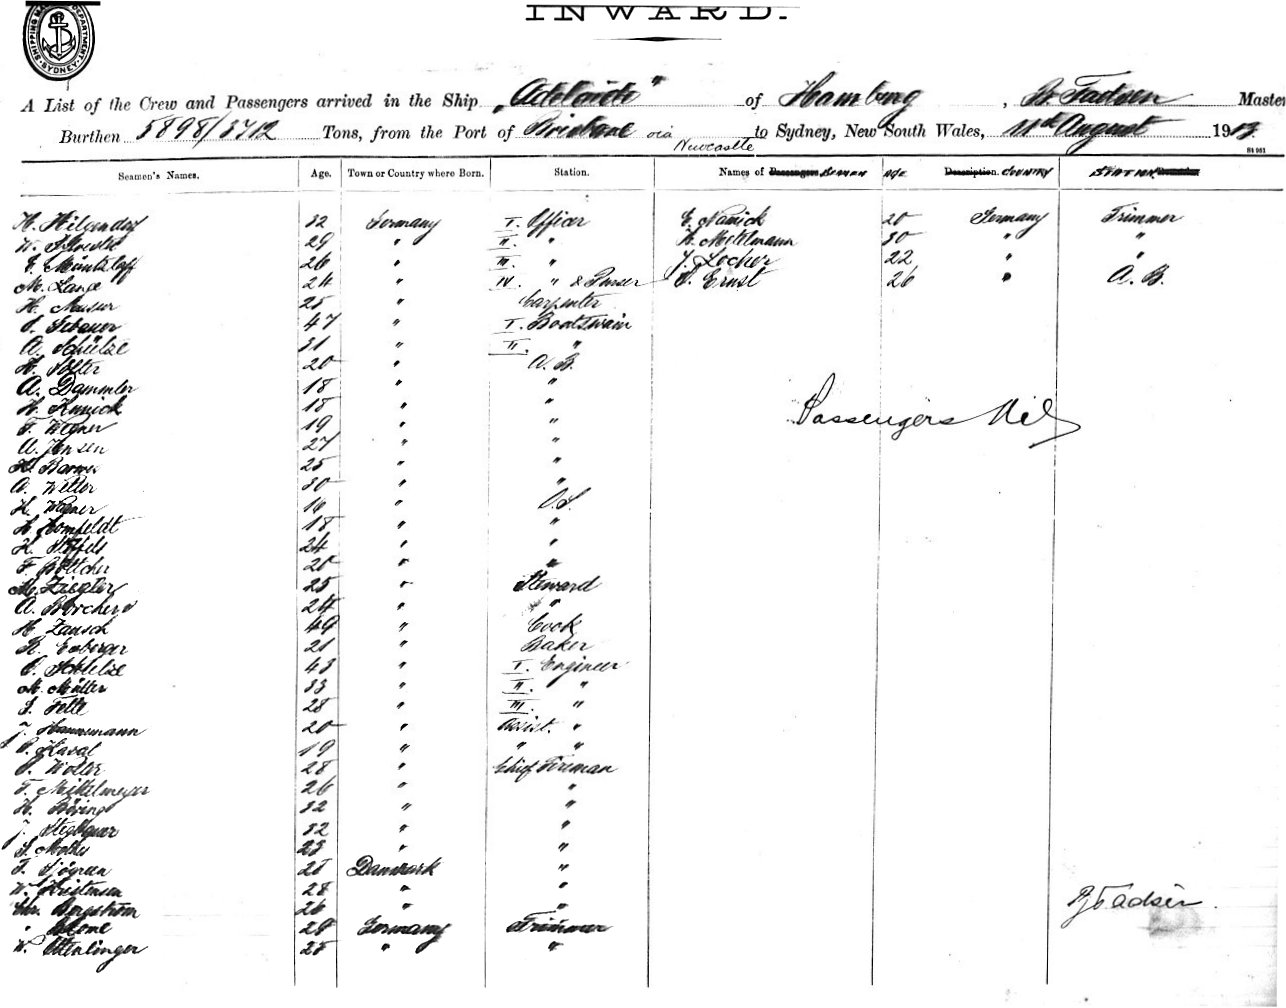 SHIPPING MASTER'S DEPARTMENT. SYDNEY
INWARD.
A List of the Crew and Passengers arrived in the Ship „Adelaide" of Hamburg, Fadsen Master
Burthen 5898/3712 Tons, from the Port of Brisbane via Newcastle to Sydney, New South Wales, 11th August 1913.
Seamen's Names. Age. Town or Country where Born. Station. Names of Passengers SEAMEN AGE Description. COUNTRY STATION
H. Hilgendorf 32 Germany I. Officer E. Nanick 20 Germany Trimmer
W. 29 " II. " A. Mettelmann 30 " "
E. Müntzlaff 26 " III. " J. Locher 22 " "
M. Lange 24 " IV. " & Purser P. Ernst 26 " A. B.
H. Mauser 25 " Carpenter
Gebauer 47 " I. Boatswain
A. Schültze 31 " II. "
H. Polter 20 " A. B.
A. Dammler 18 " "
H. Kunick 18 " "
Passengers Nil
F. Wegner 19 " "
A. Jensen 27 " "
H. Barmer 25 " "
A. Wetter 30 " "
H. Wagner 16 " O.S.
H. Homfeldt 18 " "
H. Stoffels 24 " "
F. Böttcher 20 " "
M. Ziegler 25 " Steward
A. Borchers 24 " "
H. Zausch 49 " Cook
R. Enberger 21 " Baker
O. Schletze 43 " I. Engineer
M. Müller 33 " II. "
S. Tette 28 " III. "
J. Hannemann 20 " Assist. "
P. Hasal 19 " " "
P. Wolter 28 " Chief Fireman
F. Mittelmeyer 26 " "
H. Böving 32 " "
J. 32 " "
S. Mothes 23 " "
F. Sjögreen 28 Danmark "
W. Kristensen 28 " "
Chr. Bergström 26 " "
Blome 20 Germany Trimmer
Fadsen
W. Ottenlinger 25 " "